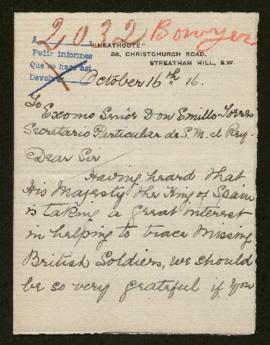 2032 Bowyer
A
"HEATHCOTE"
Pedir informes
38, CHRISTCHURCH ROAD,
Que se haga así
STREATHAM HILL, S.W.
October 16th 16.
To Excmo Señor Don Emilio Torres
Secretario Particular de S. M. el Rey.
Dear Sir
Having heard that
His Majesty The King of Spain
is taking a great interest
in helping to trace Missing
British Soldiers, we should
be so very grateful if you